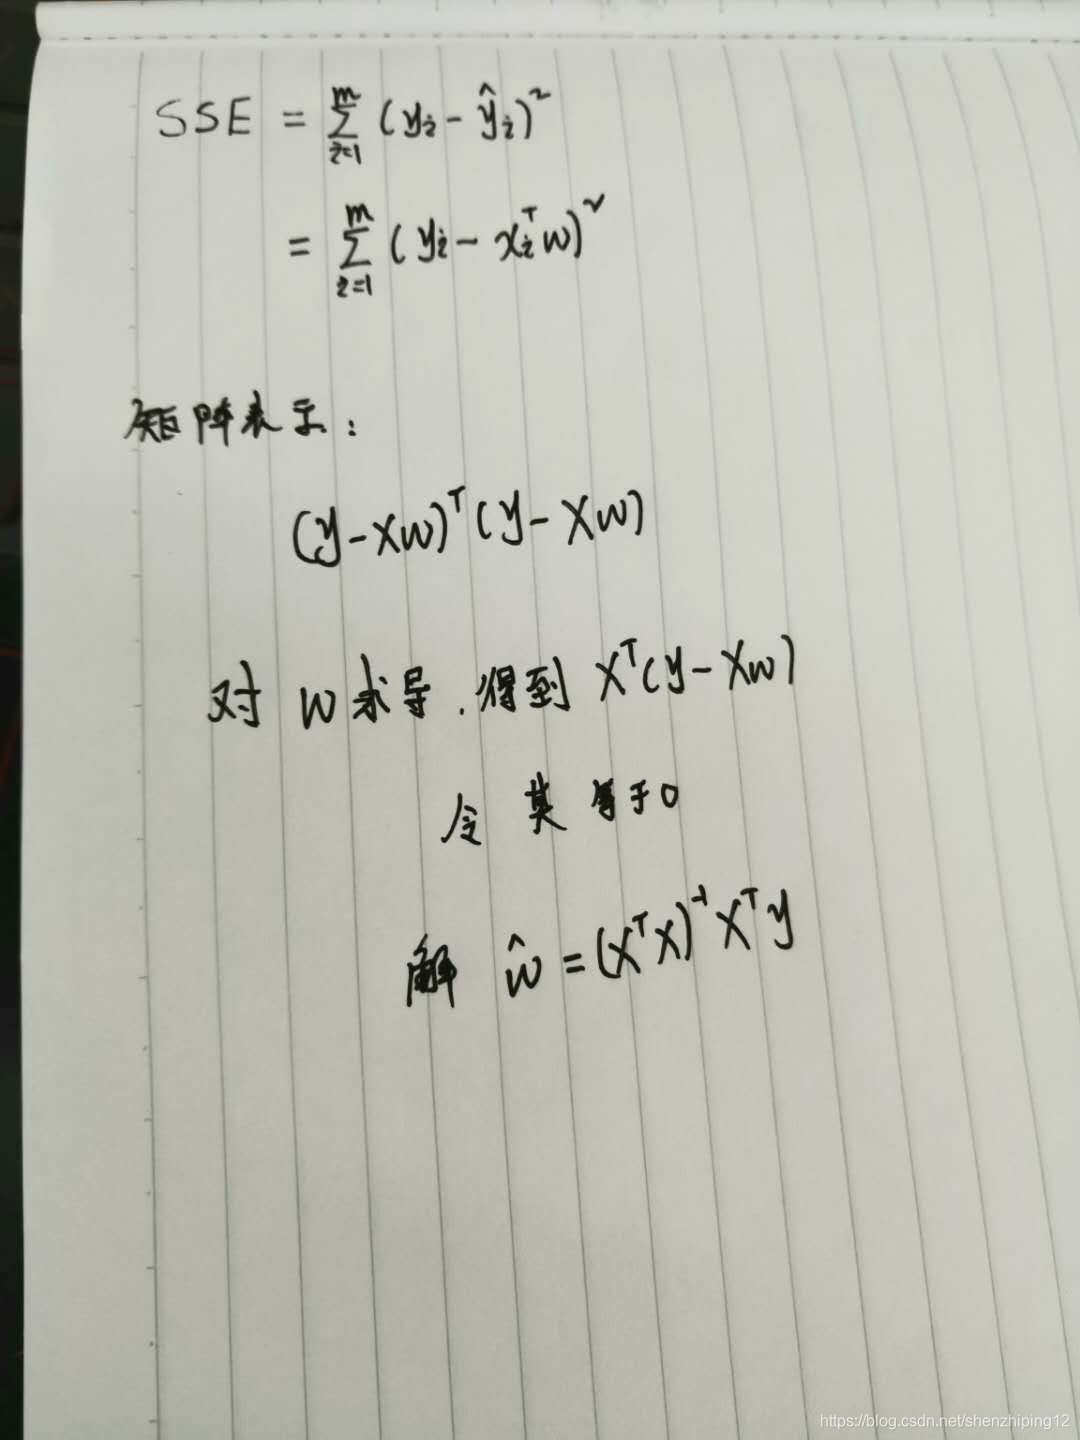 SSE = \sum_{i=1}^{m} (y_i - \hat{y}_i)^2
= \sum_{i=1}^{m} (y_i - x_i^T w)^2
矩阵表示:
(y - Xw)^T (y - Xw)
对 w 求导. 得到 X^T (y - Xw)
令 其 等于 0
解 \hat{w} = (X^T X)^{-1} X^T y
https://blog.csdn.net/shenzhiping12